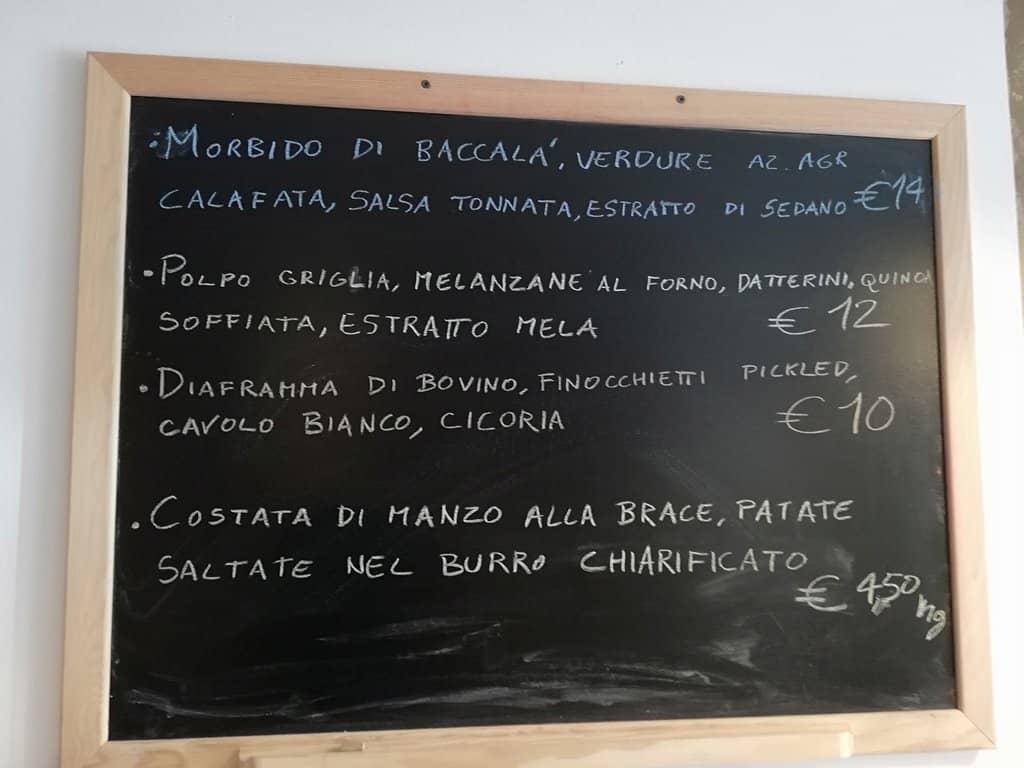 • MORBIDO DI BACCALA', VERDURE AZ. AGR
CALAFATA, SALSA TONNATA, ESTRATTO DI SEDANO €14
• POLPO GRIGLIA, MELANZANE AL FORNO, DATTERINI, QUINOA
SOFFIATA, ESTRATTO MELA € 12
• DIAFRAMMA DI BOVINO, FINOCCHIETTI PICKLED,
CAVOLO BIANCO, CICORIA € 10
• COSTATA DI MANZO ALLA BRACE, PATATE
SALTATE NEL BURRO CHIARIFICATO
€ 4,50